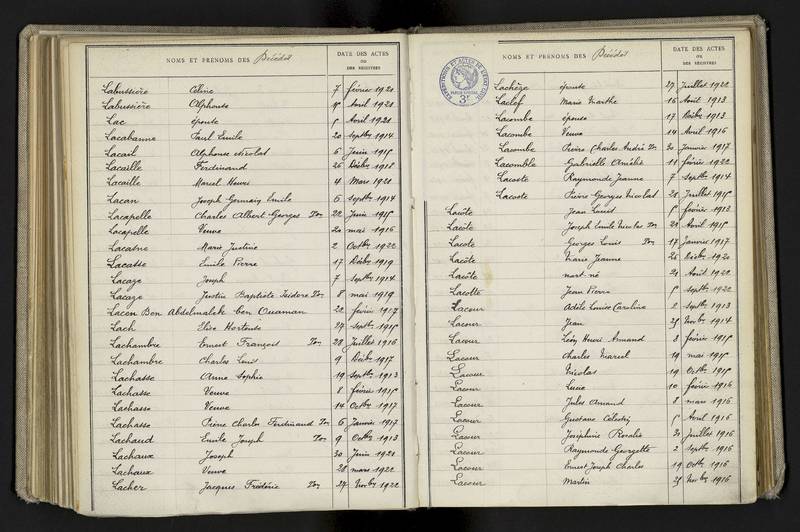 NOMS ET PRÉNOMS DES Décédés
DATE DES ACTES
OU
DES REGISTRES
Labussière Céline 7 février 1920
Labussière Alphonse Avril 1920
Lac épouse Avril 1920
Lacabanne Paul Emile 20 septbre 1914
Lacail Alphonse Nicolas 6 Juin 1915
Lacaille Ferdinand 26 Décbre 1918
Lacaille Marcel Henri 4 Mars 1921
Lacan Joseph Germain Emile 6 septbre 1914
Lacapelle Charles Albert Georges Ton 22 Juin 1915
Lacapelle Veuve 20 mai 1916
Lacatne Marie Justine 2 Octbre 1922
Lacasse Emile Pierre 17 Décbre 1919
Lacaze Joseph 7 septbre 1914
Lacaze Justin Baptiste Isidore Ton 8 mai 1919
Lacen Ben Abdelmalek ben Ouaman 22 février 1917
Lach Elise Hortense 27 septbre 1915
Lachambre Ernest François Ton 28 Juillet 1916
Lachambre Charles Louis 9 Décbre 1917
Lachasse Anne Sophie 19 septbre 1913
Lachasse Veuve 8 février 1915
Lachasse Veuve 14 Octbre 1917
Lachasse Pierre Charles Ferdinand Ton 6 Janvier 1917
Lachaud Emile Joseph Ton 9 Octbre 1913
Lachaux Joseph 30 Juin 1920
Lachaux Veuve 28 mars 1922
Lacher Jacques Frédéric Ton 27 Novbre 1922
NOMS ET PRÉNOMS DES Décédés
DATE DES ACTES
OU
DES REGISTRES
Lachège épouse 27 Juillet 1922
Laclef Marie Marthe 16 Août 1913
Lacombe épouse 17 Décbre 1913
Lacombe Veuve 14 Avril 1916
Lacombe Pierre Charles André Ton 30 Janvier 1917
Lacomble Gabrielle Amélie 11 février 1922
Lacoste Raymonde Jeanne 7 septbre 1914
Lacoste Pierre Georges Nicolas 28 Juillet 1915
Lacôte Jean Louis 5 février 1913
Lacôte Joseph Emile Nicolas Ton Avril 1915
Lacote Georges Louis Ton 17 Janvier 1917
Lacôte Marie Jeanne 26 Décbre 1920
Lacôte mort-né Août 1922
Lacotte Jean Pierre 5 septbre 1922
Lacour Adèle Louise Caroline 2 septbre 1913
Lacour Jean 25 Novbre 1914
Lacour Léon Henri Armand 8 février 1915
Lacour Charles Marcel 19 mai 1915
Lacour Nicolas 19 Octbre 1915
Lacour Lucie 10 février 1916
Lacour Jules Armand 8 mars 1916
Lacour Gustave Célestin 5 Avril 1916
Lacour Joséphine Rosalie 30 Juillet 1916
Lacour Raymonde Georgette 2 septbre 1916
Lacour Ernest Joseph Charles 19 Octbre 1916
Lacour Martin 25 Novbre 1916